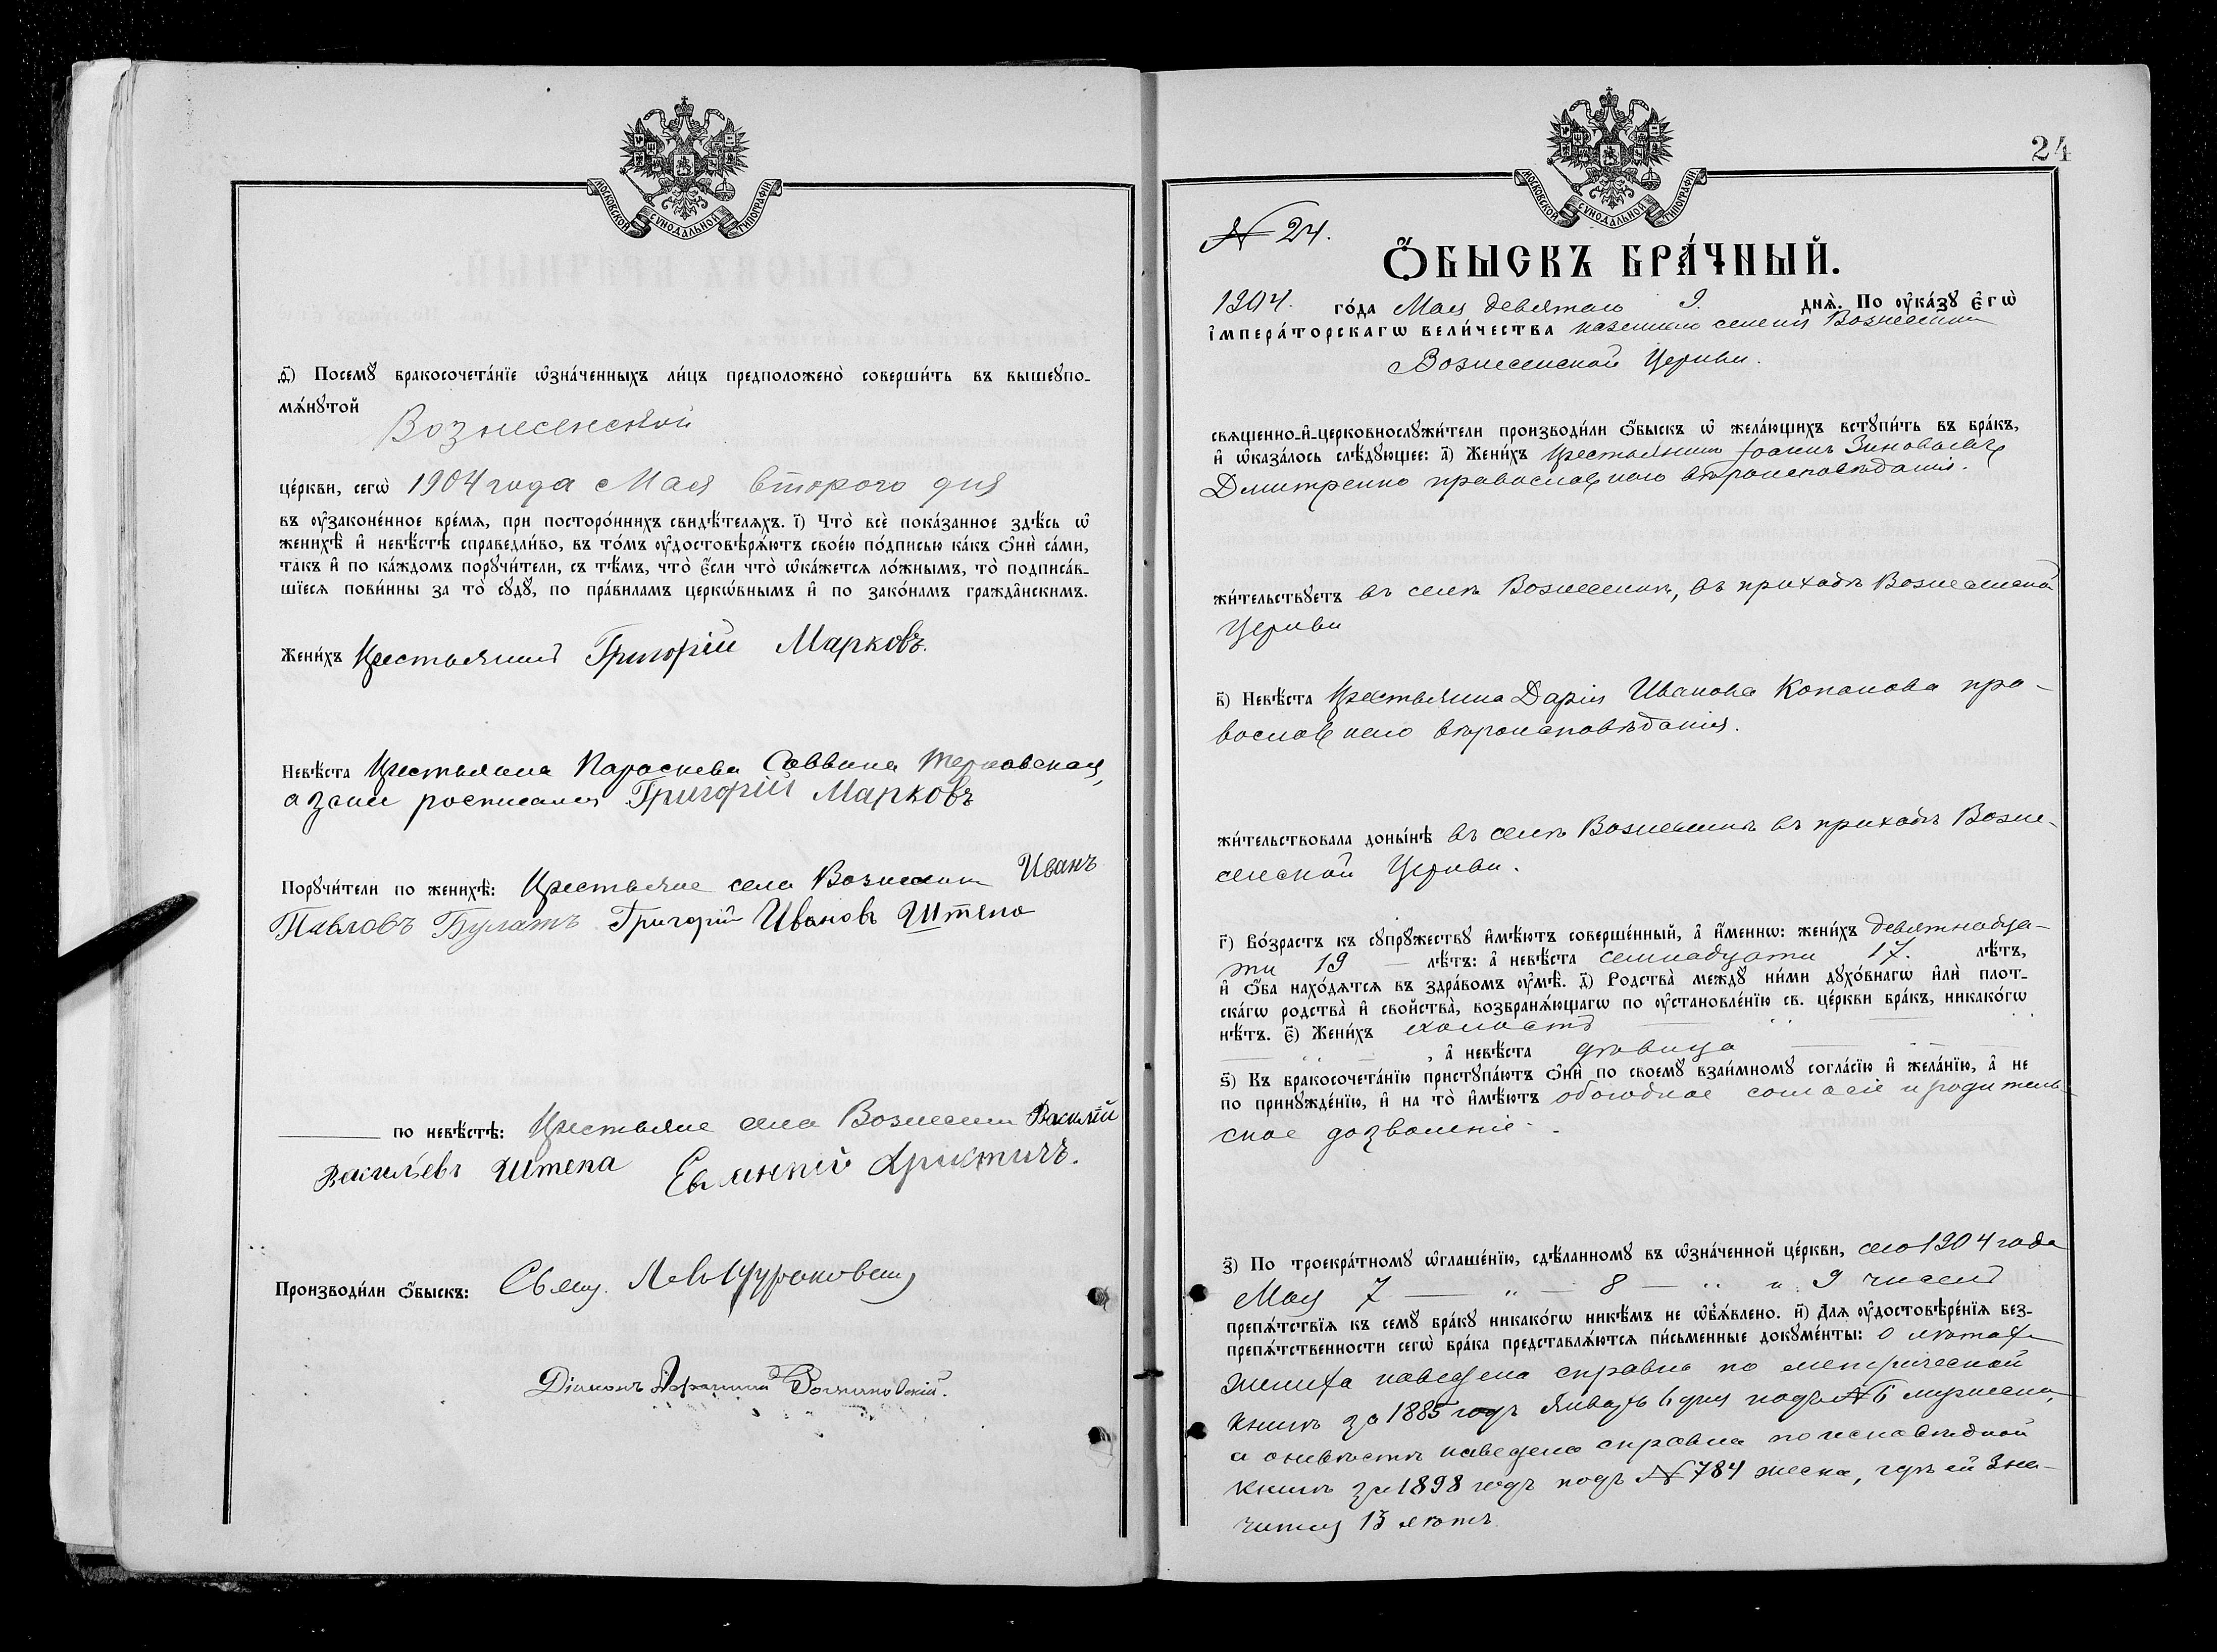 МОСКОВСКОЙ СѴНОДАЛЬНОЙ ТИПОГРАФІИ
ѳ҃) Посемꙋ бракосочета́нїе ѡ҆зна́ченныхъ ли́цъ предположено̀ соверши́ть въ вышеꙋпо-
мѧ́нꙋтой
Вознесенской
це́ркви, сегѡ̀ 1904 года Мая второго дня
въ ᲂу҆законе́нное вре́мѧ, при посторо́ннихъ свидѣ́телѧхъ. і҃) Что̀ всѐ пока́занное здѣ́сь ѡ҆
женихѣ̀ и҆ невѣ́стѣ справедли́во, въ то́мъ ᲂу҆достовѣрѧ́ютъ свое́ю по́дписью ка́къ ѻ҆нѝ са́ми,
та́къ и҆ по ка́ждомъ порꙋчи́тели, съ тѣ́мъ, что̀ є҆́сли что̀ ѡ҆ка́жетсѧ ло́жнымъ, то̀ подписа́в-
шїесѧ пови́нны за то̀ сꙋдꙋ̀, по пра́виламъ церкѡ́внымъ и҆ по зако́намъ гражда̂нскимъ.
Жени́хъ Крестьянинъ Григорій Марковъ.
Невѣ́ста Крестьянка Параскева Саввина Терновская,
а за нее росписался Григорій Марковъ
Порꙋчи́тели по женихѣ̀: Крестьяне села Вознесенки Иванъ
Павловъ Булатъ Григорій Ивановъ Штепа
по невѣ́стѣ: Крестьяне села Вознесенки Василій
Васильевъ Штепа
Производи́ли ѻ҆́быскъ: Свящ.
Діаконъ
24
МОСКОВСКОЙ СѴНОДАЛЬНОЙ ТИПОГРАФІИ
№ 24.
Ѻ҆́БЫСКЪ БРА́ЧНЫЙ.
1904. го́да Мая девятаго 9. днѧ̀. По ᲂу҆ка́зꙋ є҆гѡ̀
і҆мпера́торскагѡ вели́чества казеннаго селенія Вознесенки
Вознесенской Церкви.
свѧще́нно-и҆-церковнослꙋжи́тели производи́ли ѻ҆́быскъ ѡ҆ жела́ющихъ встꙋпи́ть въ бра́къ,
и҆ ѡ҆каза́лось слѣ́дꙋющее: а҃) Жени́хъ Крестьянинъ Іоаннъ Зиновьевъ
Дмитренко православнаго вѣроисповѣданія.
жи́тельствꙋетъ въ селѣ Вознесенкѣ, въ приходѣ Вознесенской
Церкви
в҃) Невѣ́ста Крестьянка Дарія Иванова Копанова пра-
вославнаго вѣроисповѣданія.
жи́тельствовала доны́нѣ въ селѣ Вознесенкѣ въ приходѣ Возне-
сенской Церкви.
г҃) Во́зрастъ къ сꙋпрꙋ́жествꙋ и҆мѣ́ютъ соверше́нный, а҆ и҆́меннѡ: жени́хъ девятнадца-
ти 19 — лѣ́тъ: а҆ невѣ́ста семнадцати 17. лѣ́тъ,
и҆ ѻ҆́ба нахо́дѧтсѧ въ здра́вомъ ᲂу҆мѣ̀. д҃) Родства̀ междꙋ̀ ни́ми дꙋхо́внагѡ и҆лѝ плот-
ска́гѡ родства̀ и҆ свойства̀, возбранѧ́ющагѡ по ᲂу҆становле́нїю св. це́ркви бра́къ, никако́гѡ
нѣ́тъ. є҃) Жени́хъ холостъ
, а҆ невѣ́ста дѣвица
ѕ҃) Къ бракосочета́нїю пристꙋпа́ютъ ѻ҆нѝ по своемꙋ̀ взаи́мномꙋ согла́сїю и҆ жела́нїю, а҆ не
по принꙋжде́нїю, и҆ на то̀ и҆мѣ́ютъ обоюдное согласіе и родитель-
ское дозволеніе.
з҃) По троекра́тномꙋ ѡ҆глаше́нїю, сдѣ́ланномꙋ въ ѡ҆зна́ченной це́ркви, сего 1904 года
Мая 7 — „ — 8 — „ и 9 чиселъ
препѧ́тствїѧ къ семꙋ̀ бра́кꙋ никако́гѡ никѣ́мъ не ѡ҆б̾ѧ́влено. и҃) Длѧ ᲂу҆достовѣре́нїѧ без-
препѧ́тственности сегѡ̀ бра́ка представлѧ́ютсѧ пи́сьменные докꙋме́нты: о лѣтахъ
жениха наведена справка по метрической
книгѣ за 1885 годъ Январь 6 дня подъ № 6 мужеска,
а о невѣстѣ наведена справка по исповѣдной
книгѣ за 1898 годъ подъ № 784 женска, гдѣ ей зна-
чится 13 лѣтъ